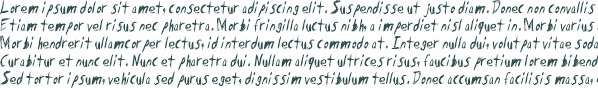 Lorem ipsum dolor sit amet, consectetur adipiscing elit. Suspendisse ut justo diam. Donec non convallis
Etiam tempor vel risus nec pharetra. Morbi fringilla luctus nibh, a imperdiet nisl aliquet in. Morbi varius
Morbi hendrerit ullamcorper lectus, id interdum lectus commodo at. Integer nulla dui, volutpat vitae soda
Curabitur et nunc elit. Nunc et pharetra dui. Nullam aliquet ultrices risus, faucibus pretium lorem bibend
Sed tortor ipsum, vehicula sed purus eget, dignissim vestibulum tellus. Donec accumsan facilisis massa,